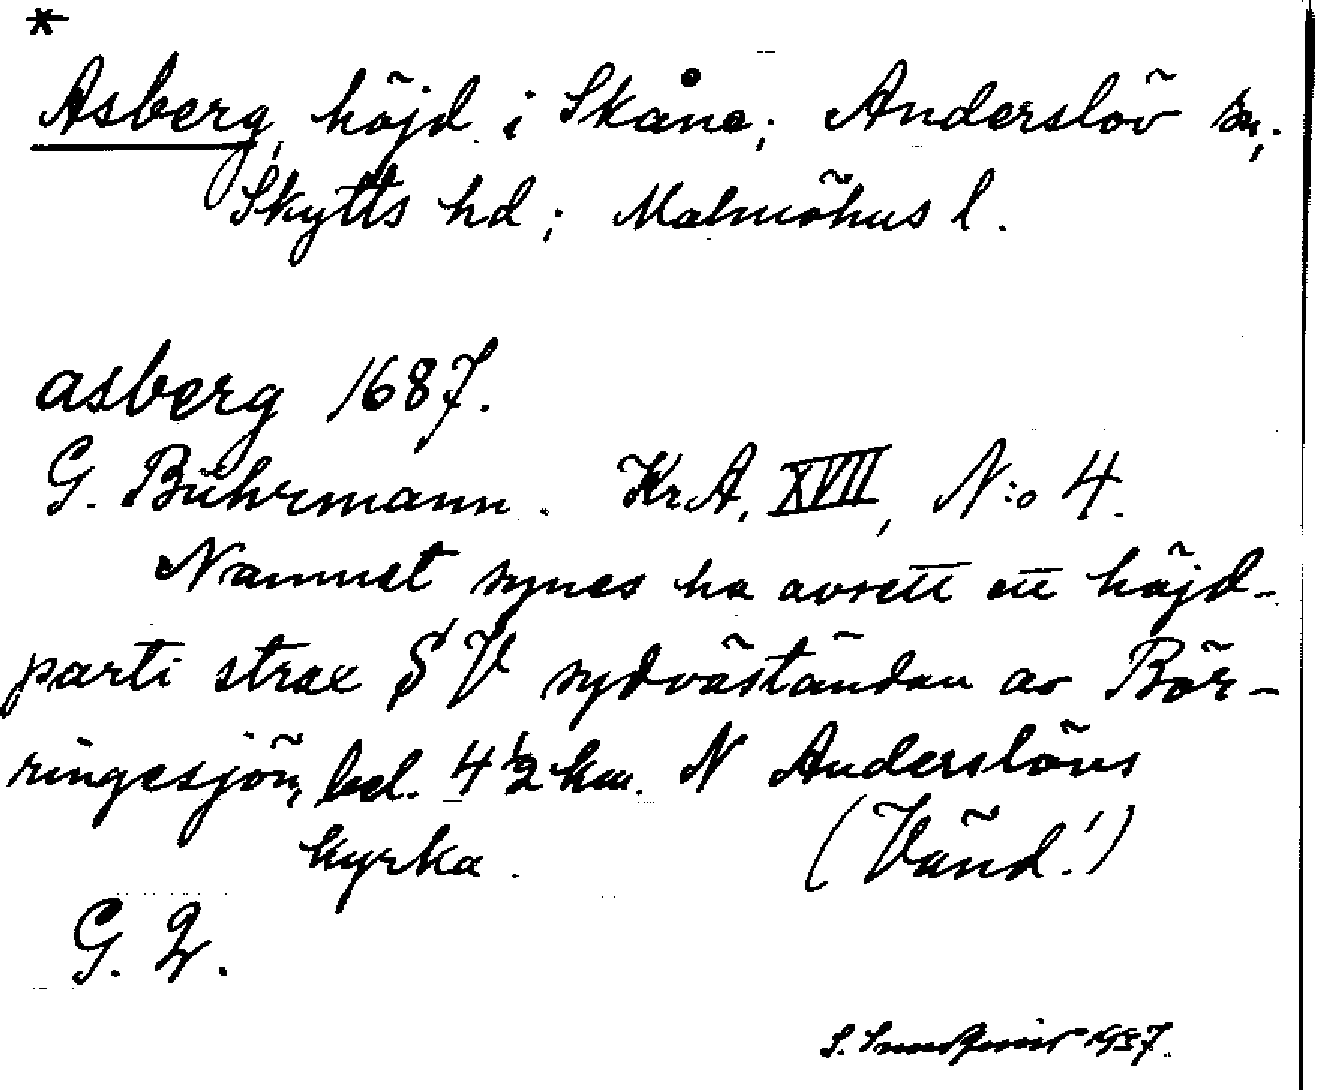 *
Asberg, höjd i Skåne; Anderslöv sn;
Skytts hd; Malmöhus l.
asberg 1687.
G. Buhrmann. KrA, XVII, N:o 4.
Namnet synes ha avsett ett höjd-
parti strax SV sydväständan av Bör-
ringesjön, bel. 4 1/2 km. N Anderslövs
kyrka. (Vänd!)
G. 2.
S. 1937.